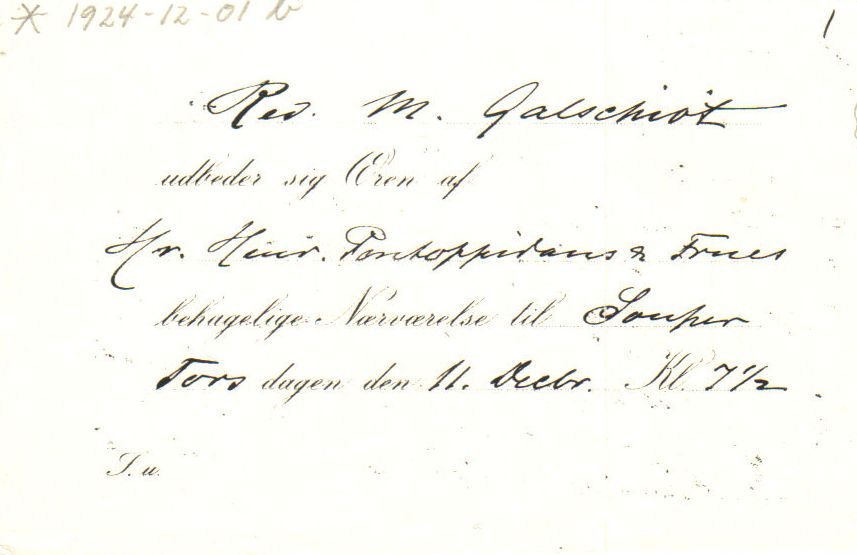 * 1924-12-01 b
1
Red. M. Galschiøt
udbeder sig Æren af
Hr. Henr. Pontoppidans & Frues
behagelige Nærværelse til Souper
Tors dagen den 11. Decbr. Kl. 7 1/2
S. u.